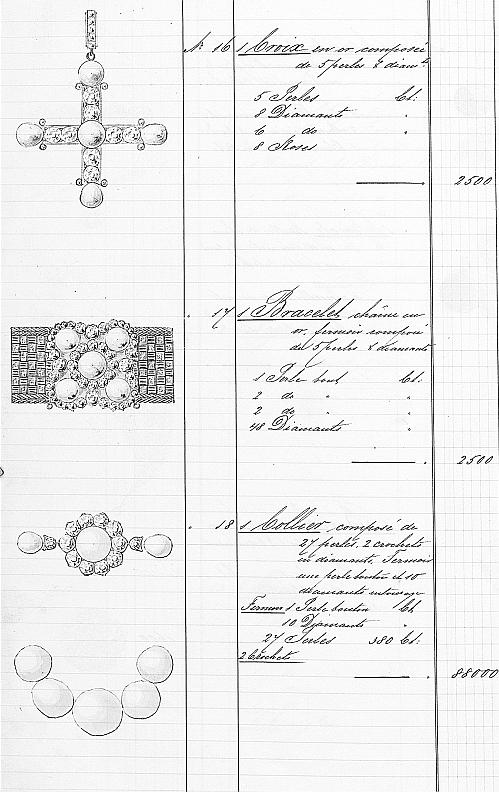 N. 16 1 Croix en or composée
de 5 perles & diamts
5 Perles Ct.
8 Diamants "
6 do "
8 Roses
2500
" 17 1 Bracelet chaîne en
or, fermoir composé
de 5 perles & diamants
1 Perle bout Ct.
2 do " "
2 do " "
48 Diamants "
2500
" 18 1 Collier composé de
27 perles, 2 crochets
en diamants, Fermoir
une perle bouton et 10
diamants entourage
Fermoir 1 Perle bouton Ct
10 Diamants "
27 Perles 380 Ct.
2 Crochets
88000